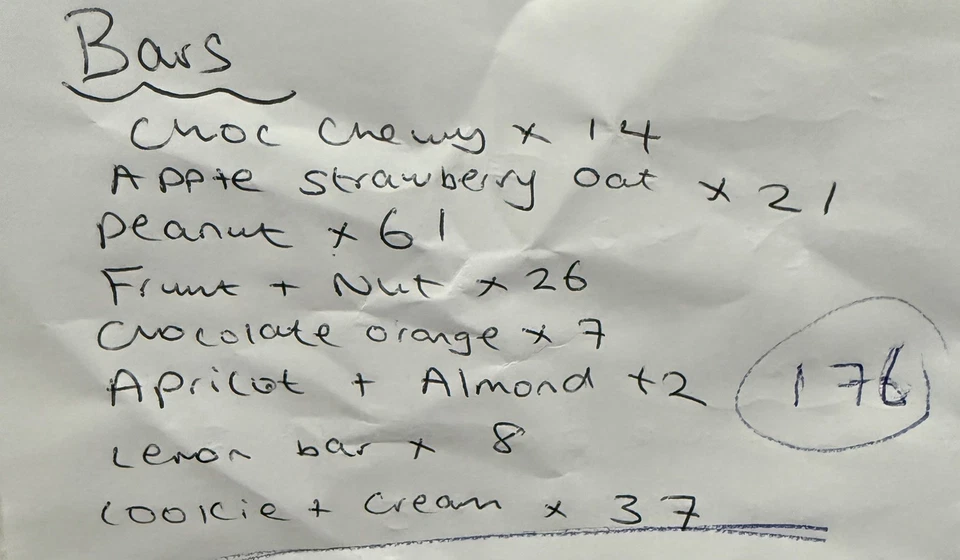 Bars
Choc Chewy x 14
Apple strawberry oat x 21
Peanut x 61
Fruit + Nut x 26
Chocolate orange x 7
Apricot + Almond x2
176
Lemon bar x 8
Cookie + Cream x 37